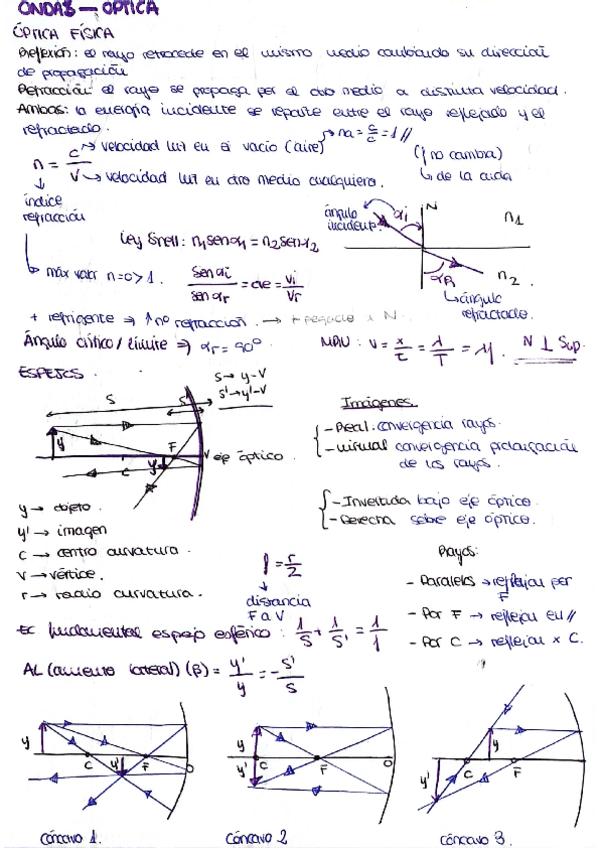 ONDAS — ÓPTICA
ÓPTICA FÍSICA
Reflexión: el rayo retrocede en el mismo medio cambiando su dirección
de propagación
Refracción: el rayo se propaga por el otro medio a distinta velocidad.
Ambos: la energía incidente se reparte entre el rayo reflejado y el
refractado.
na = c/c = 1 //
n = c/v
c → velocidad luz en el vacío (aire)
(f no cambia)
v → velocidad luz en otro medio cualquiera.
↳ de la onda
índice
refracción
ángulo
incidente
αi
N
n1
Ley Snell: n1 sen α1 = n2 sen α2
n2
αR
↳ ángulo
refractado.
↳ máx valor n=0 > 1.
sen αi / sen αr = cte = vi / vr
+ refrigente ⇒ ↑ nº refracción. → + pegado x N.
Ángulo crítico/límite ⇒ αr = 90º
MRU: v = x/t = λ/T = λf.
N ⊥ Sup.
ESPEJOS.
s → y-V
s' → y'-V
s
s'
y
F
y'
C
V
eje óptico.
Imágenes.
- Real: convergencia rayos.
- Virtual convergencia prolongación
de los rayos.
- Invertida bajo eje óptico.
- Derecha sobre eje óptico.
y → objeto.
y' → imagen
C → centro curvatura.
V → vértice.
r → radio curvatura.
f = r/2
distancia
F a V
Rayos:
- Paralelos → reflejan por
F
- Por F → reflejan en //
- Por C → reflejan x C.
Ec fundamental espejo esférico: 1/s + 1/s' = 1/f
AL (aumento lateral) (β) = y'/y = -s'/s
y
C
y'
F
O
y
y'
C
F
O
y'
C
y
F
Cóncavo 1.
Cóncavo 2
Cóncavo 3.